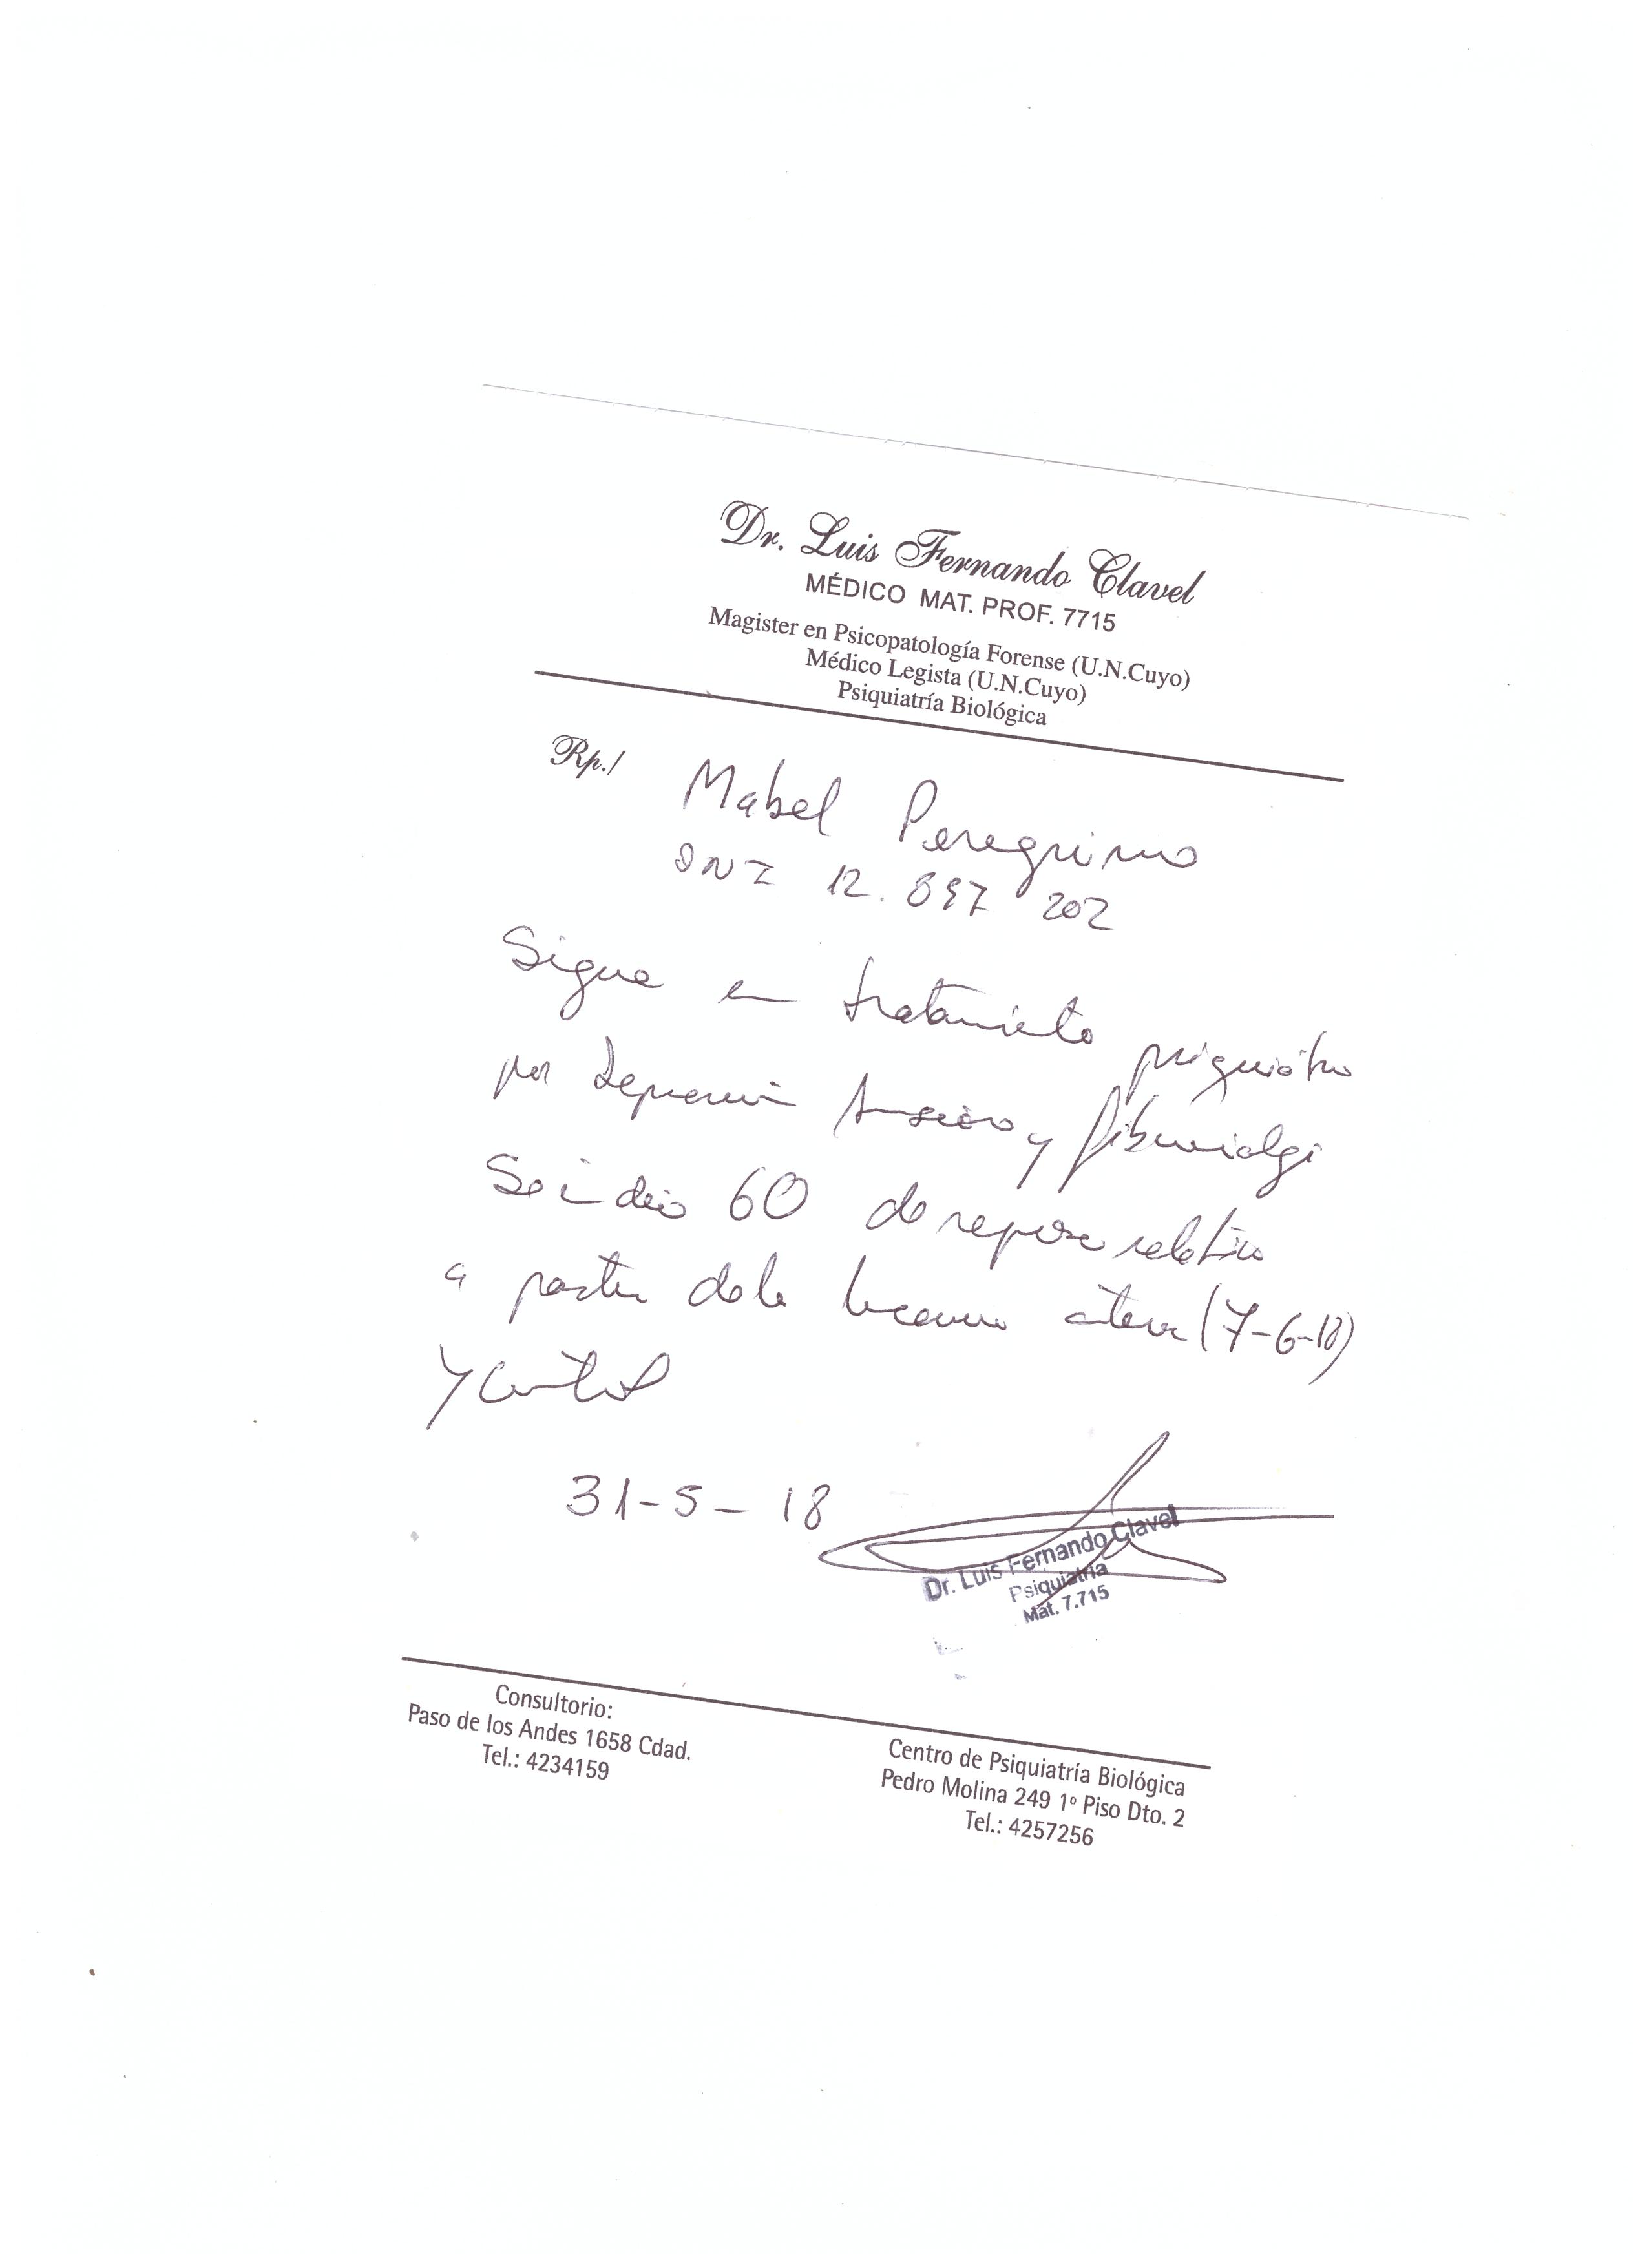 Dr. Luis Fernando Clavel
MÉDICO MAT. PROF. 7715
Magister en Psicopatología Forense (U.N.Cuyo)
Médico Legista (U.N.Cuyo)
Psiquiatría Biológica
Rp./ Mabel Peregrino
DNI 12.897 202
Sigue en tratamiento psiquiátrico
por depresión y fibromialgi
Se indica 60 de reposo relativo
a partir de la licencia anterior (7-6-18)
y control
31-5-18
Dr. Luis Fernando Clavel
Psiquiatría
Mat. 7.715
Consultorio:
Paso de los Andes 1658 Cdad.
Tel.: 4234159
Centro de Psiquiatría Biológica
Pedro Molina 249 1º Piso Dto. 2
Tel.: 4257256